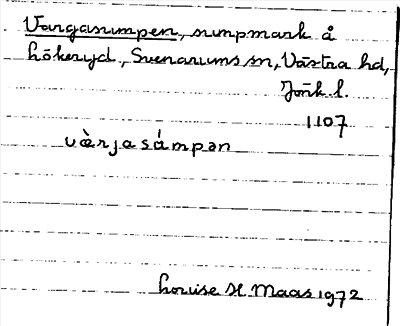 Vargasumpen, sumpmark å
Hökeryd, Svenarums sn, Västra hd,
Jönk. l.
1107
vàrjasámpən
Louise H. Maas 1972